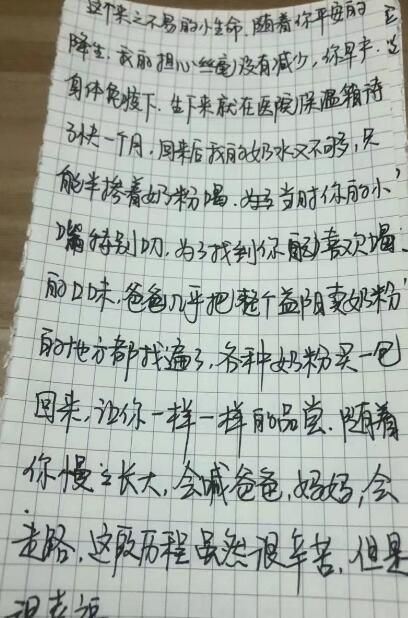 这个来之不易的小生命,随着你平安的
降生,我的担心丝毫没有减少,你早产,
身体免疫下,生下来就在医院保温箱待
了快一个月,回来后我的奶水又不够,只
能半掺着奶粉喝,为了当时你的小
嘴特别叨,为了找到你喜欢喝
的口味,爸爸几乎把整个益阳卖奶粉
的地方都找遍了,各种奶粉买一包
回来,让你一样一样的品尝,随着
你慢慢长大,会喊爸爸,妈妈,会
走路,这段历程虽然很辛苦,但是
很幸福